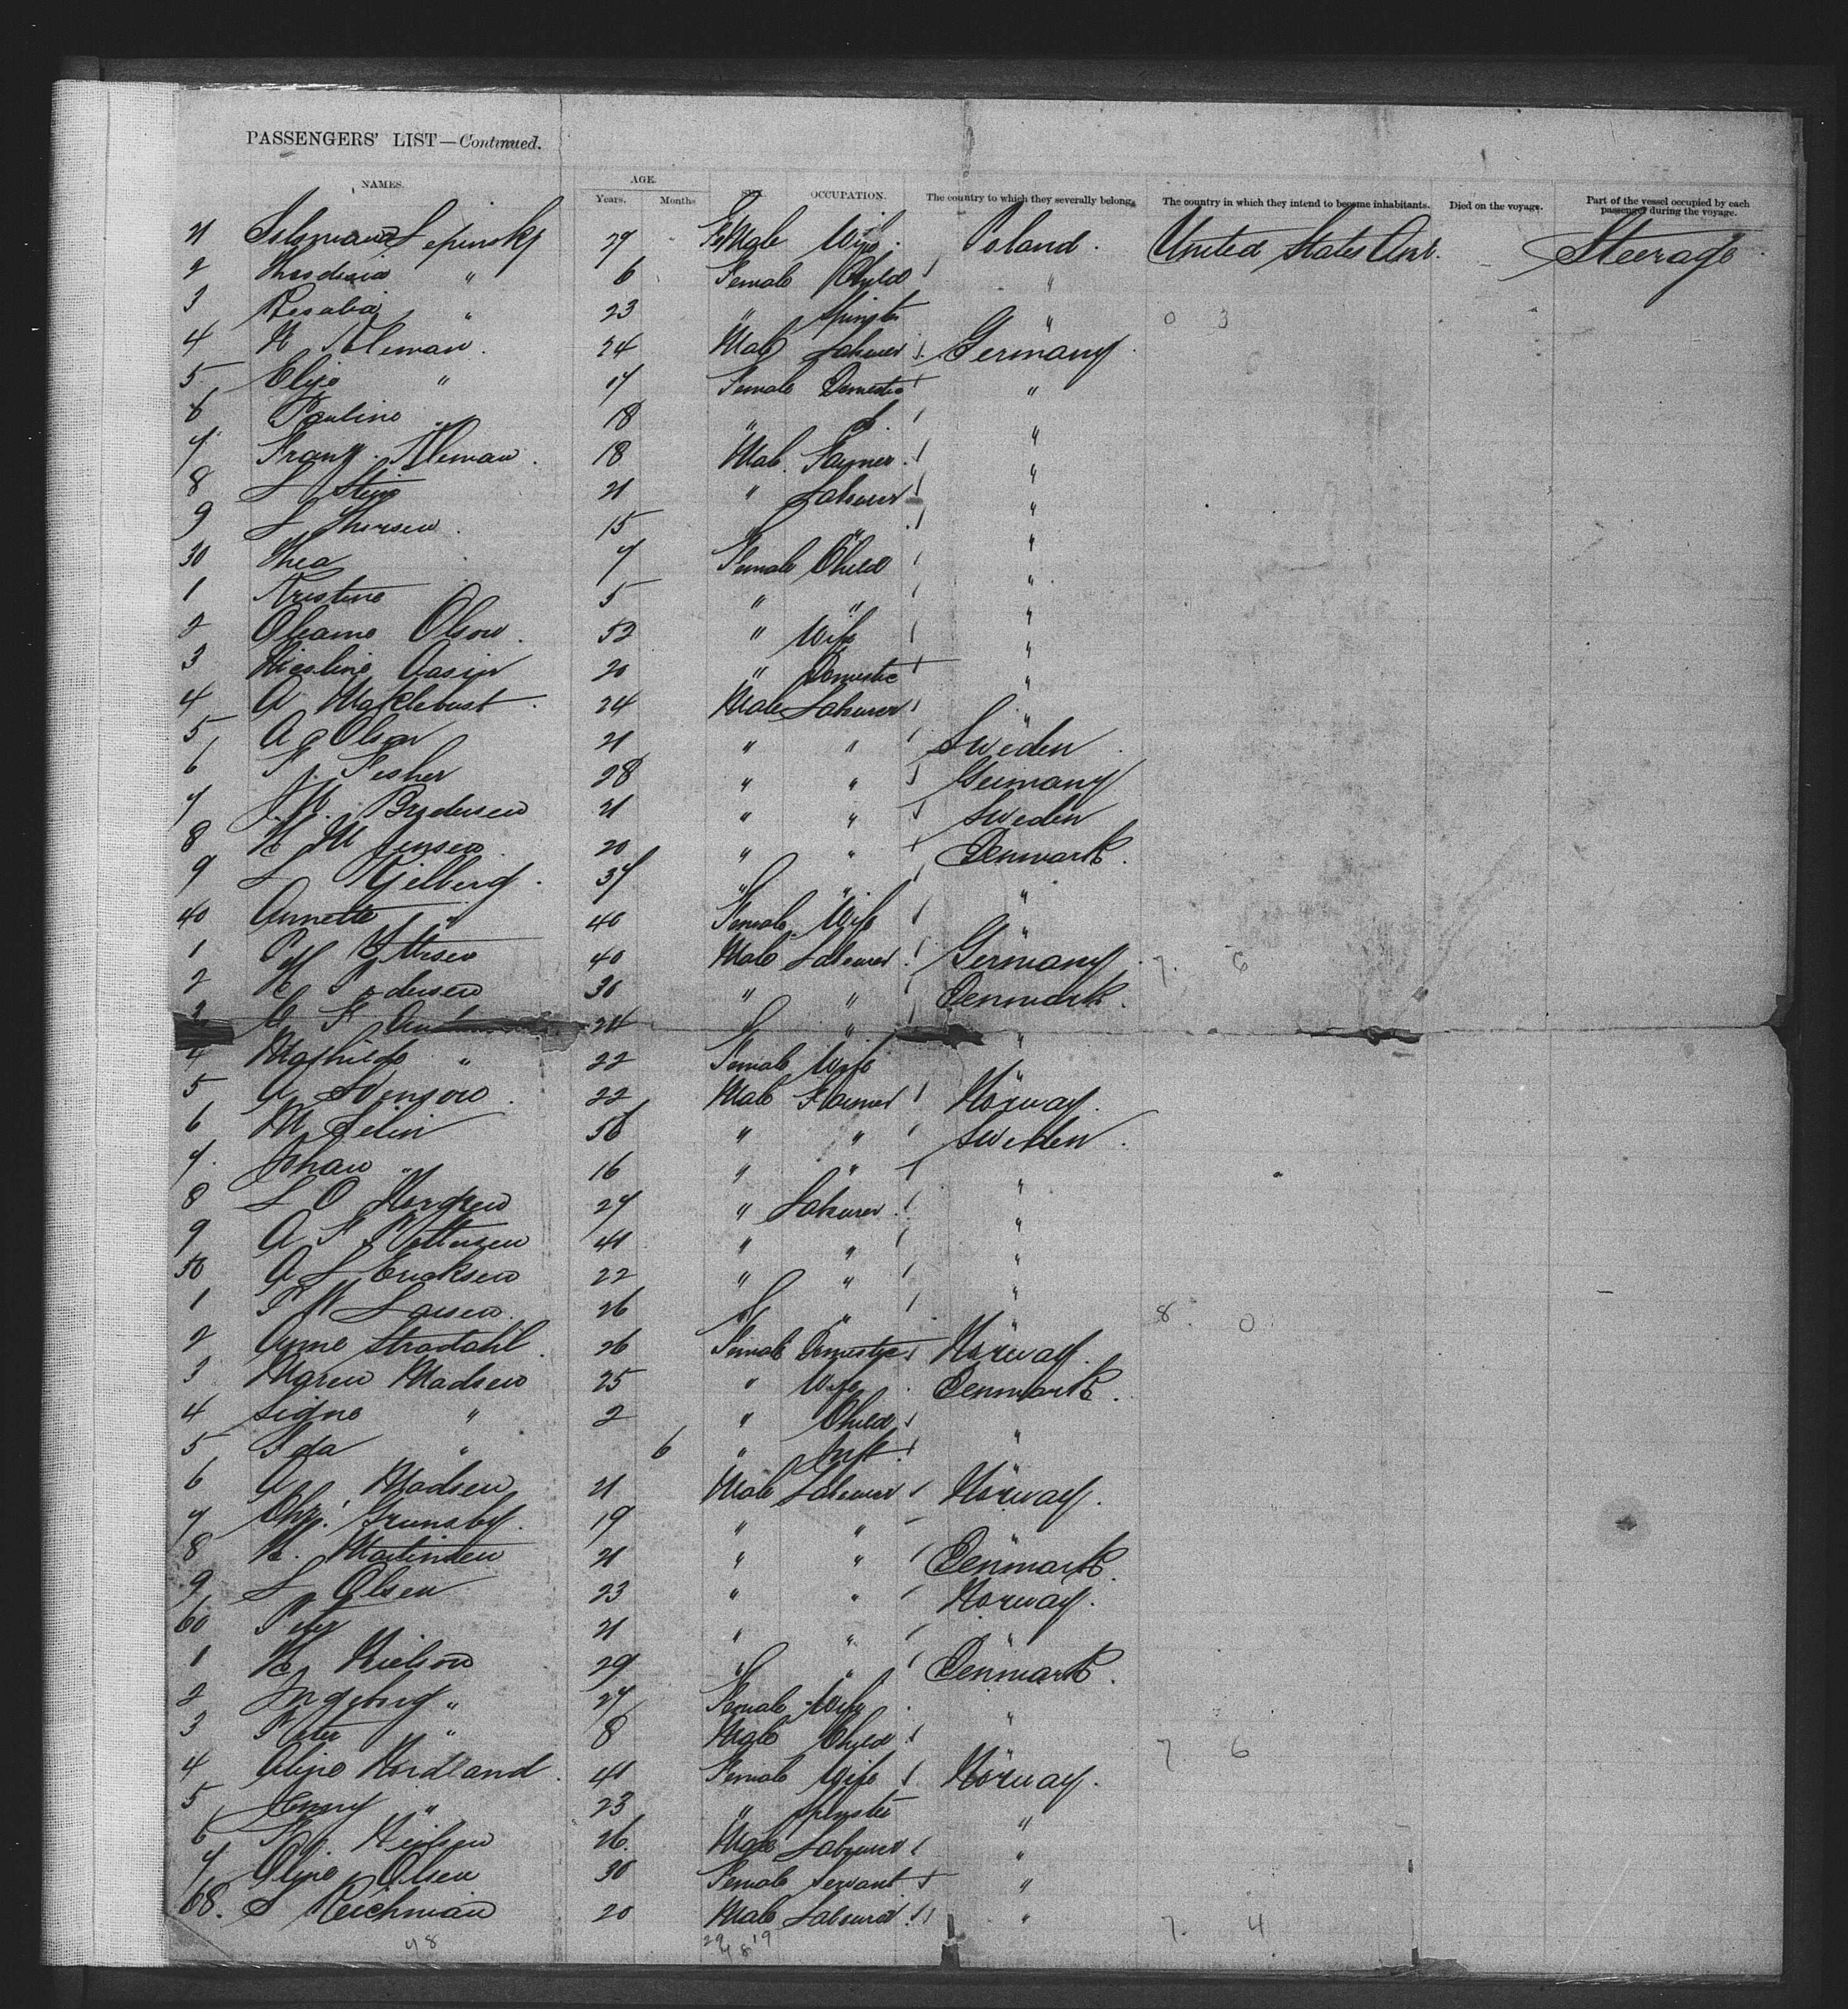 PASSENGERS' LIST—Continued.
NAMES. AGE. Years. Months SEX. OCCUPATION. The country to which they severally belong. The country in which they intend to become inhabitants. Died on the voyage. Part of the vessel occupied by each passenger during the voyage.
21 Lepinsky 29 FeMale Wife Poland. United States Am. Steerage
2 " 6 Female Child "
3 Rosalia " 23 " Spinster "
4 24 Male Labourer Germany
5 Elise " 17 Female Domestic "
6 Pauline " 18 " d. "
7 Franz 18 Male Farmer "
8 L Stein 21 " Labourer "
9 L Thorsen 15 " " "
30 Thea 7 Female Child "
1 Kristine 5 " " "
2 Oleame Olsow 52 " Wife "
3 Aasen 20 " Domestic "
4 A Maklebust 24 Male Labourer "
5 A Olson 21 " " Sweden
6 F. Fisher 28 " " Germany
7 J. W. Brodersen 21 " " Sweden
8 H M Jensen 20 " " Denmark.
9 L Kjelberg 37 " " "
40 Annette " 40 Female Wife "
1 40 Male Labourer Germany
2 H Pedersen 30 " " Denmark.
3 C F 24 " " "
4 Mathilde " 22 Female Wife
5 A Svenson 22 Male Farmer Norway.
6 M Selin 56 " " Sweden.
7 Johan " 16 " " "
8 L O Norgren 27 " Labourer "
9 A F Pettersen 41 " " "
50 A L Ericksen 22 " " "
1 P W Larsen 26 " " "
2 Anne Strodahl 26 Female Domestic Norway.
3 Maren Madsen 25 " Wife Denmark.
4 Signe " 2 " Child
5 Ida " 6 " Inft. "
6 A Madsen 21 Male Labourer Norway.
7 Chr. Grunsby. 19 " "
8 H. Martinsen 21 " " Denmark.
9 L Olsen 23 " " Norway.
60 Peter 21 " " "
1 H Nielson 29 " " Denmark.
2 Ingeborg " 27 Female Wife "
3 Peter " 8 Male Child
4 Oline Nordland 41 Female Wife Norway.
5 Jenny " 23 " Spinster "
6 Neilsen 26. Male Labourer "
7 Oline Olsen 30 Female Servant "
68. S Reichman 20 Male Labourer "
48 29 19
48
0 3
7. 6
8. 0
7 6
7. 4